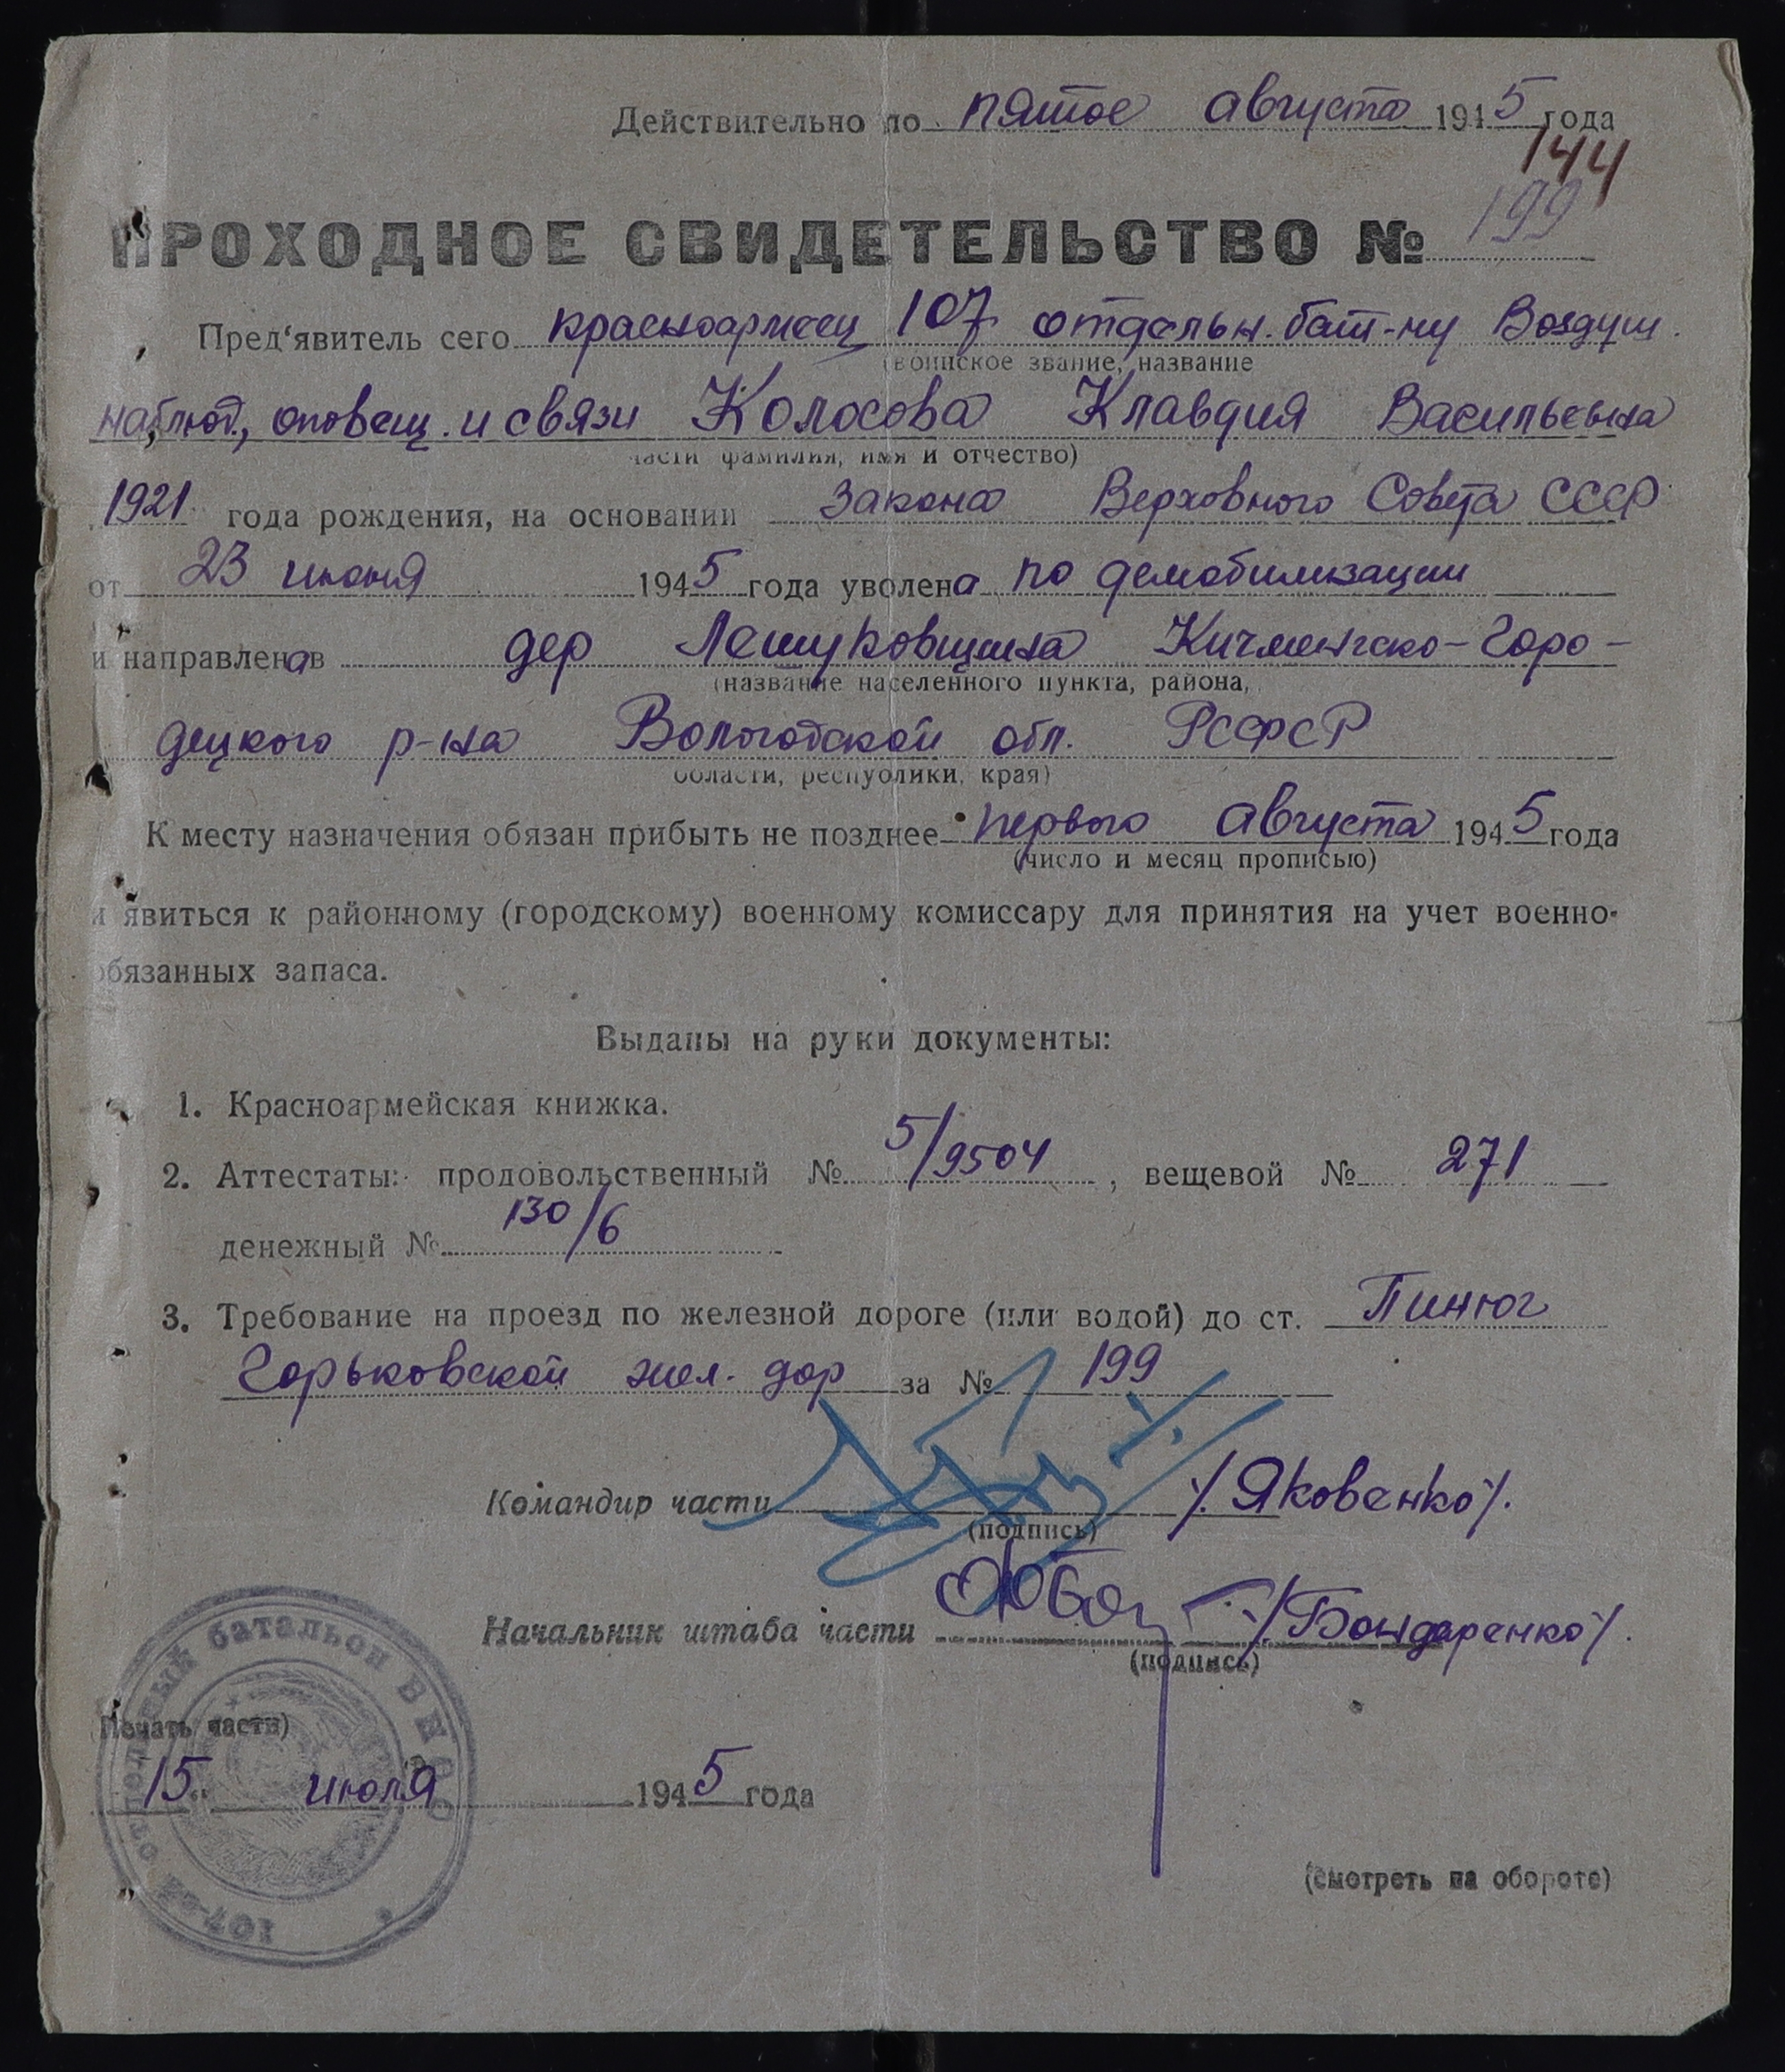 Действительно по пятое августа 1945 года
144
ПРОХОДНОЕ СВИДЕТЕЛЬСТВО № 199
Пред'явитель сего красноармеец 107 отдельн. бат-ну Воздуш.
(воинское звание, название
наблюд, оповещ. и связи Колосова Клавдия Васильевна
части фамилия, имя и отчество)
1921 года рождения, на основании Закона Верховного Совета СССР
от 23 июня 1945 года уволена по демобилизации
и направлена в дер Лешуковщина Кичменгско-Горо-
(название населенного пункта, района,
децкого р-на Вологодской обл. РСФСР
области, республики, края)
К месту назначения обязан прибыть не позднее первого августа 1945 года
(число и месяц прописью)
и явиться к районному (городскому) военному комиссару для принятия на учет военно-
обязанных запаса.
Выданы на руки документы:
1. Красноармейская книжка.
2. Аттестаты: продовольственный № 5/9504, вещевой № 271
денежный № 130/6
3. Требование на проезд по железной дороге (или водой) до ст. Пинюг
Горьковской жел. дор за № 199
Командир части /Яковенко/.
(подпись)
Начальник штаба части /Бондаренко/.
(подпись)
107-ой отдельный батальон ВНОС
(Печать части)
15 июля 1945 года
(смотреть на обороте)